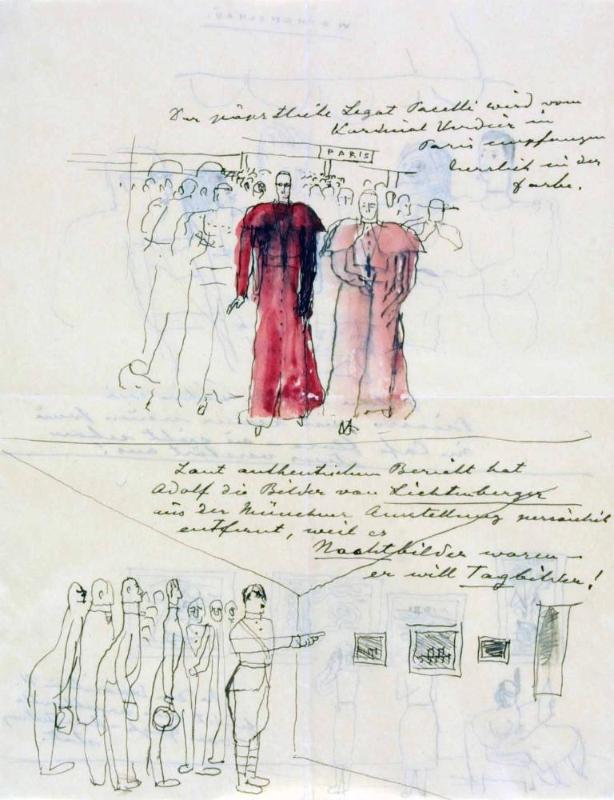 Der päpstliche Legat Pacelli wird vom
Kardinal Verdier in
Paris empfangen
herrlich in der
Farbe.
PARIS
Laut authentischem Bericht hat
Adolf die Bilder von Lichtenberger
aus der Münchner Ausstellung persönlich
entfernt, weil es
Nachtbilder waren —
er will Tagbilder!